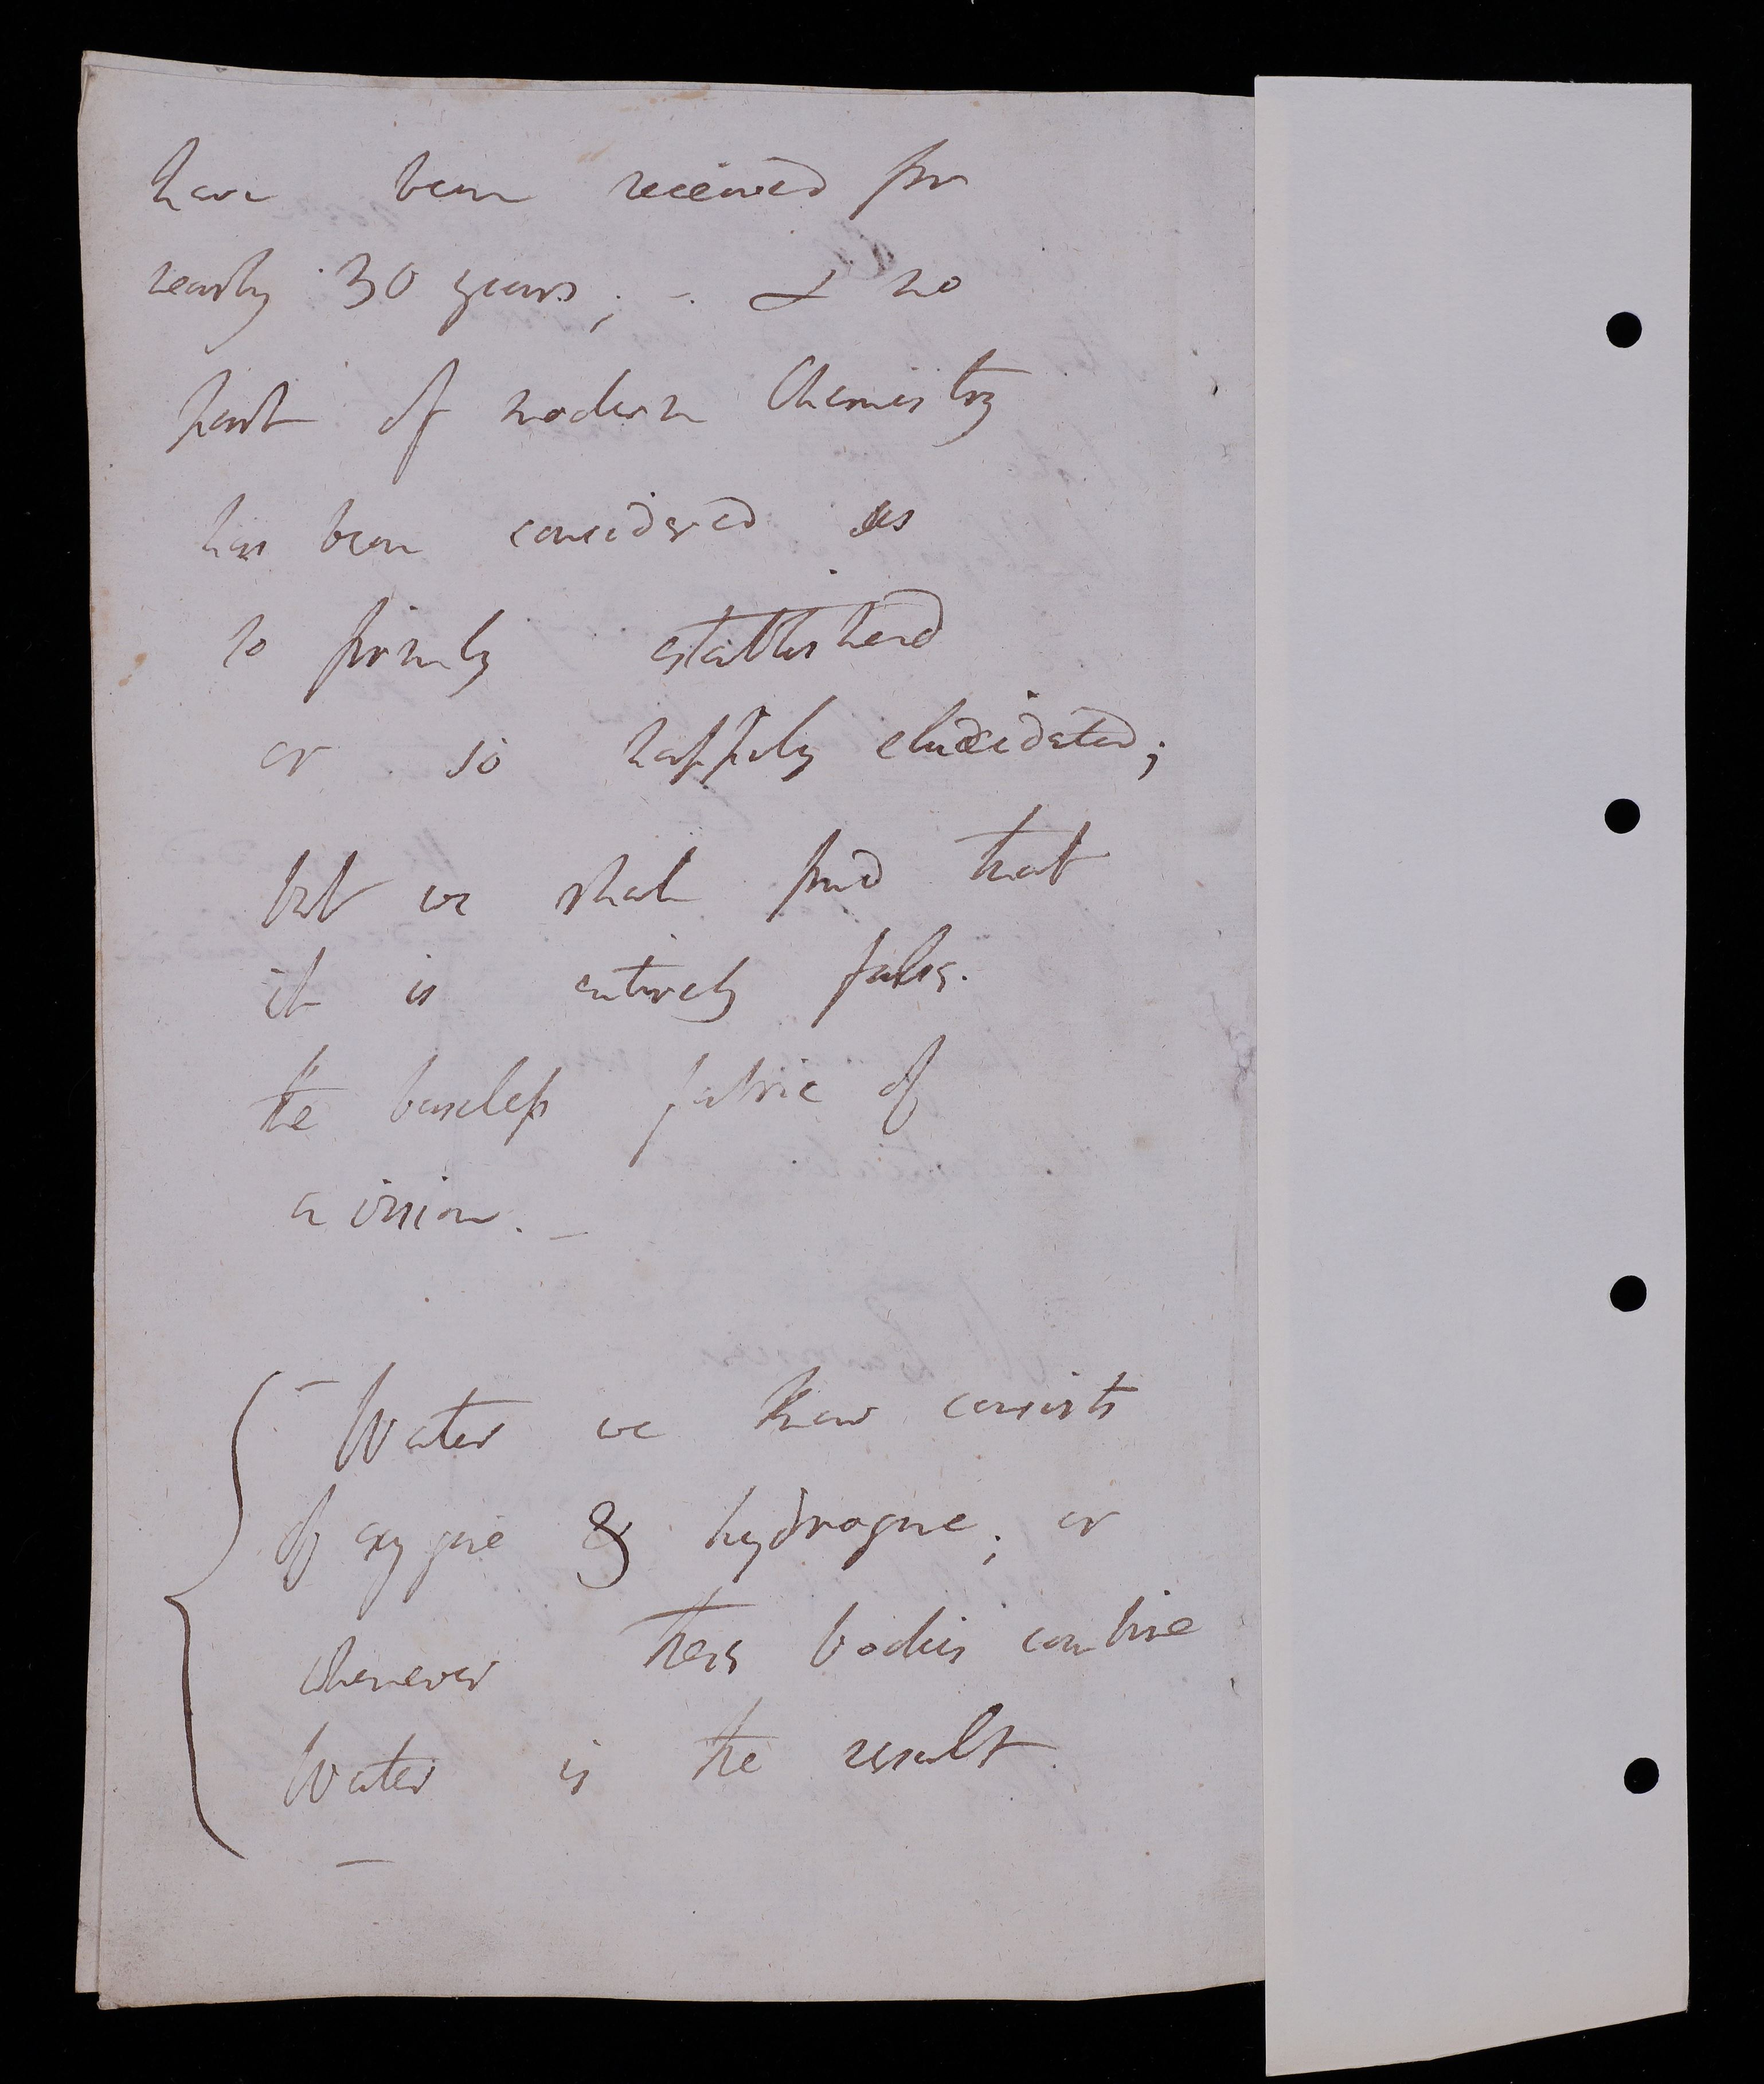 have been received for
nearly 30 years; - & no
part of modern Chemistry
has been considered as
so firmly established
or so happily elucidated;
but we shall find that
it is entirely false.
the baseless fabric of
a vision. _
- Water we know consists
of oxygene & hydrogene; or
whenever these bodies combine
Water is the result.